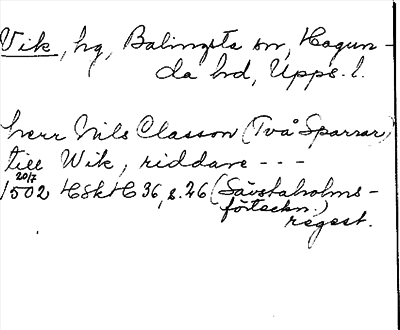 Vik, hg, Balingsta sn, Hagun-
da hd, Upps. l.
herr Nils Classon (Två Sparrar)
till Wik, riddare - - -
20/7
1502 HSkH 36, s. 26 (Sävstaholms-
förteckn.)
regest.